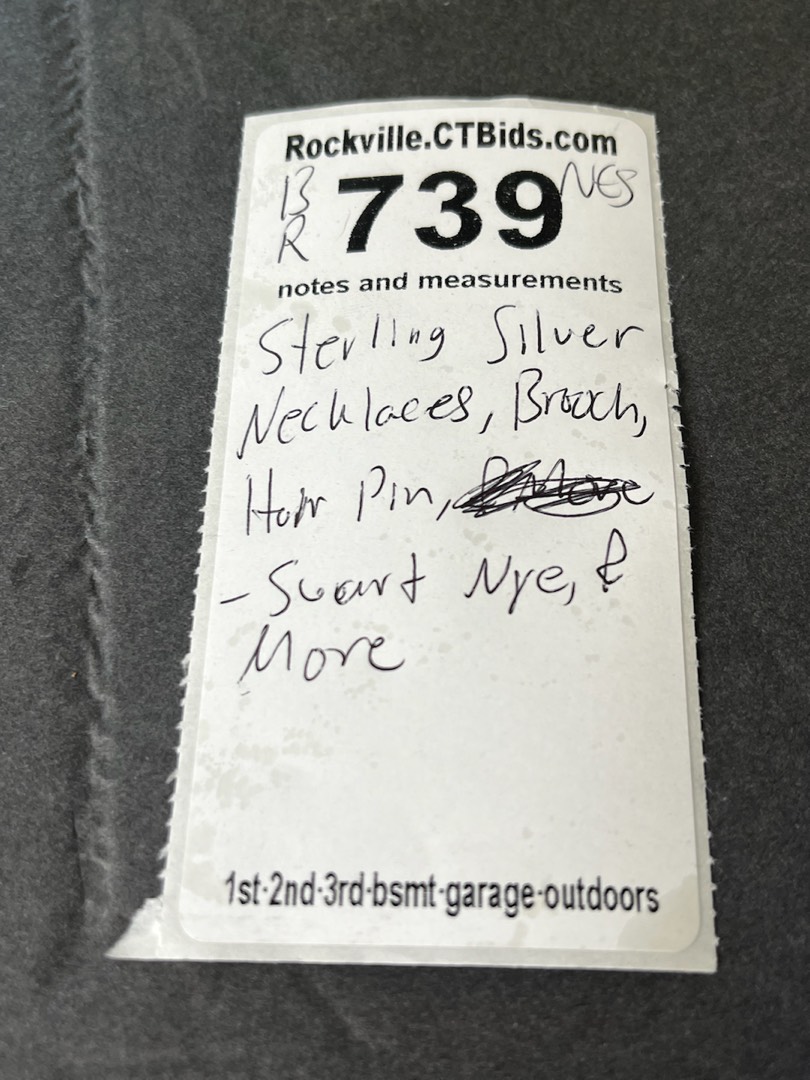 Rockville.CTBids.com
BR 739 NES
notes and measurements
Sterling Silver
Necklaces, Brooch,
Hair Pin,
- Swart Nye, &
More
1st-2nd-3rd-bsmt-garage-outdoors